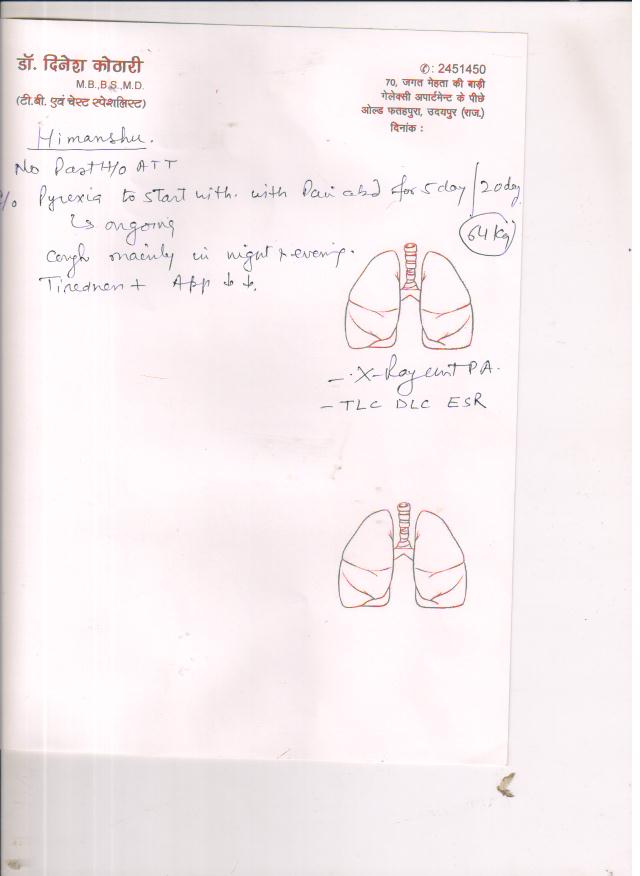 डॉ. दिनेश कोठारी
M.B.,B.S.,M.D.
(टी.बी. एवं चेस्ट स्पेशलिस्ट)
✆: 2451450
70, जगत मेहता की बाड़ी
गेलेक्सी अपार्टमेन्ट के पीछे
ओल्ड फतहपुरा, उदयपुर (राज.)
दिनांक :
Himanshu.
No Past H/o ATT
Pyrexia to start with. with Pain abd for 5 day / 20 day
is ongoing
64 kg
Cough mainly in night & evening.
Tiredness + App ↓ ↓.
- X-Ray chest PA.
- TLC DLC ESR